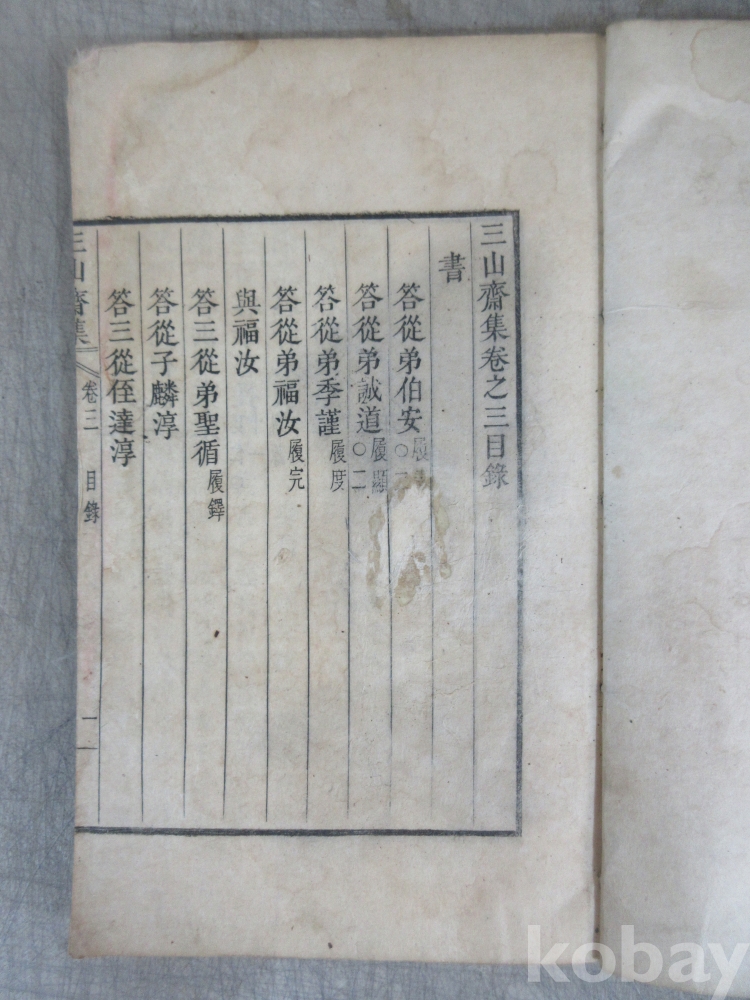 三山齋集卷之三目錄
書
答從弟伯安履○二
答從弟誠道履顯○二
答從弟季謹履度
答從弟福汝履完
與福汝
答三從弟聖循履鐸
答從子麟淳
答三從侄達淳
三山齋集 卷三 目錄 一
kobay